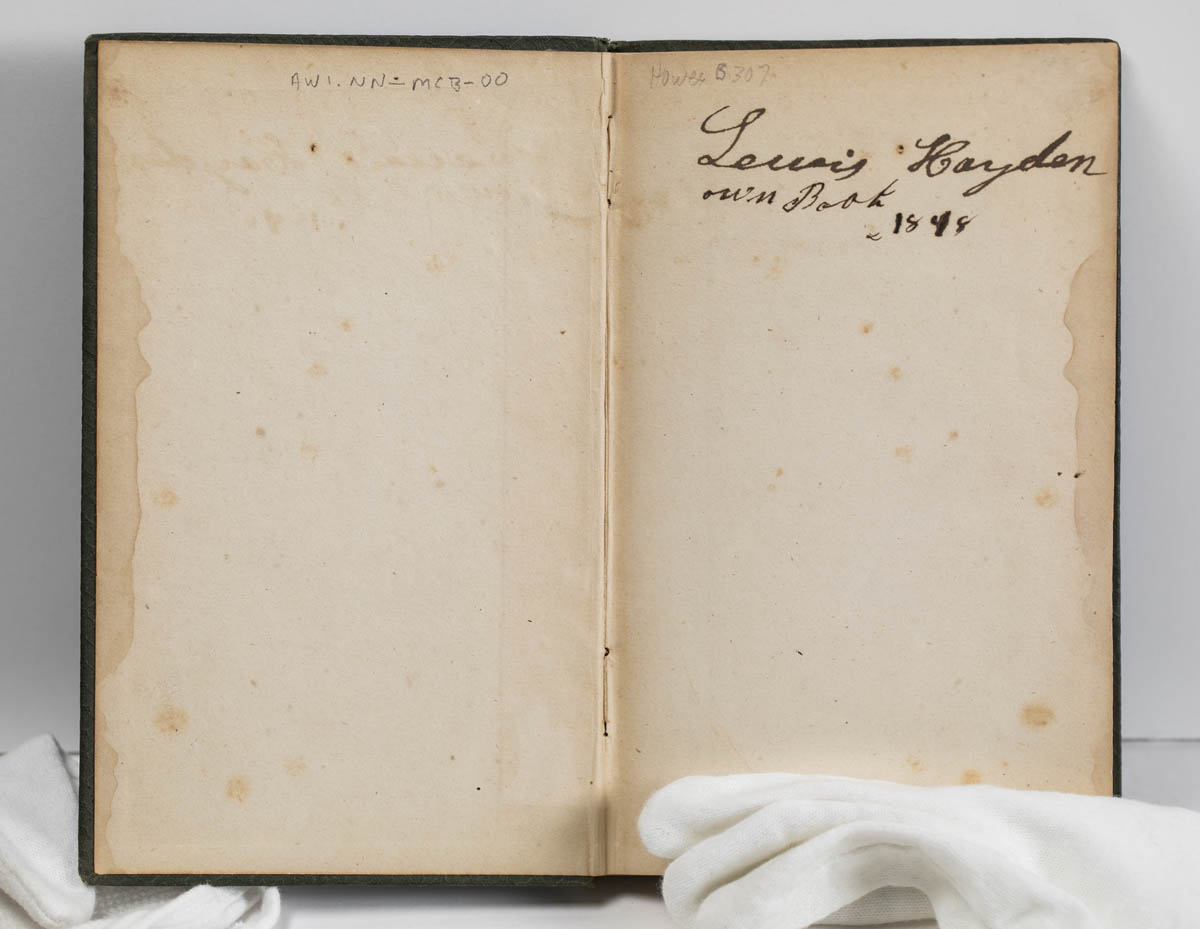 AW1. NN-MCB-00
Howes B307
Lewis Hayden
own Book
1848